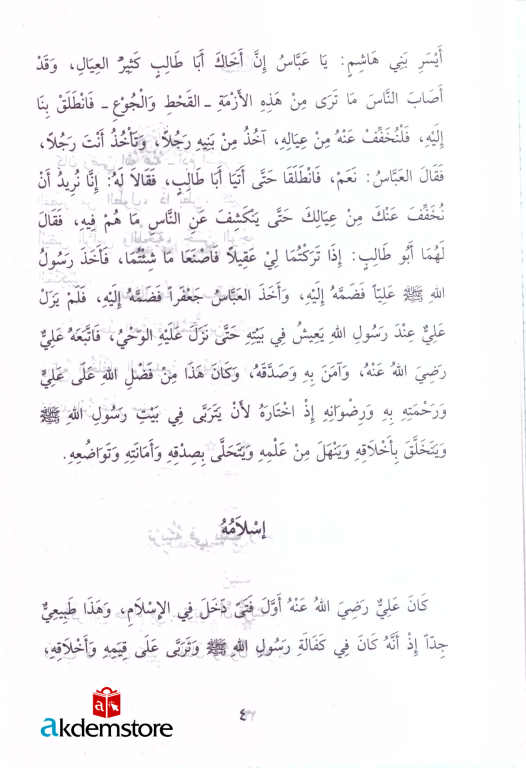 أَيْسَرِ بَنِي هَاشِمٍ: يَا عَبَّاسُ إِنَّ أَخَاكَ أَبَا طَالِبٍ كَثِيرُ العِيَالِ، وَقَدْ
أَصَابَ النَّاسَ مَا تَرَى مِنْ هَذِهِ الأَزْمَةِ ـ القَحْطِ وَالْجُوْعِ ـ فَانْطَلِقْ بِنَا
إِلَيْهِ، فَلْنُخَفِّفْ عَنْهُ مِنْ عِيَالِهِ، آخُذُ مِنْ بَنِيهِ رَجُلًا، وَتَأْخُذُ أَنْتَ رَجُلًا،
فَقَالَ العَبَّاسُ: نَعَمْ، فَانْطَلَقَا حَتَّى أَتَيَا أَبَا طَالِبٍ، فَقَالَا لَهُ: إِنَّا نُرِيدُ أَنْ
نُخَفِّفَ عَنْكَ مِنْ عِيَالِكَ حَتَّى يَنْكَشِفَ عَنِ النَّاسِ مَا هُمْ فِيهِ، فَقَالَ
لَهُمَا أَبُو طَالِبٍ: إِذَا تَرَكْتُمَا لِيْ عَقِيلًا فَاصْنَعَا مَا شِئْتُمَا، فَأَخَذَ رَسُولُ
اللهِ ﷺ عَلِيّاً فَضَمَّهُ إِلَيْهِ، وَأَخَذَ العَبَّاسُ جَعْفَراً فَضَمَّهُ إِلَيْهِ، فَلَمْ يَزَلْ
عَلِيٌّ عِنْدَ رَسُولِ اللهِ يَعِيشُ فِي بَيْتِهِ حَتَّى نَزَلَ عَلَيْهِ الوَحْيُ، فَاتَّبَعَهُ عَلِيٌّ
رَضِيَ اللهُ عَنْهُ، وَآمَنَ بِهِ وَصَدَّقَهُ، وَكَانَ هَذَا مِنْ فَضْلِ اللهِ عَلَى عَلِيٍّ
وَرَحْمَتِهِ بِهِ وَرِضْوَانِهِ إِذْ اخْتَارَهُ لأَنْ يَتَرَبَّى فِي بَيْتِ رَسُولِ اللهِ ﷺ
وَيَتَخَلَّقَ بِأَخْلَاقِهِ وَيَنْهَلَ مِنْ عِلْمِهِ وَيَتَحَلَّى بِصِدْقِهِ وَأَمَانَتِهِ وَتَوَاضُعِهِ.
إِسْلَامُهُ
كَانَ عَلِيٌّ رَضِيَ اللهُ عَنْهُ أَوَّلَ فَتًى دَخَلَ فِي الإِسْلَامِ، وَهَذَا طَبِيعِيٌّ
جِدّاً إِذْ أَنَّهُ كَانَ فِي كَفَالَةِ رَسُولِ اللهِ ﷺ وَتَرَبَّى عَلَى قِيَمِهِ وَأَخْلَاقِهِ،
akdemstore